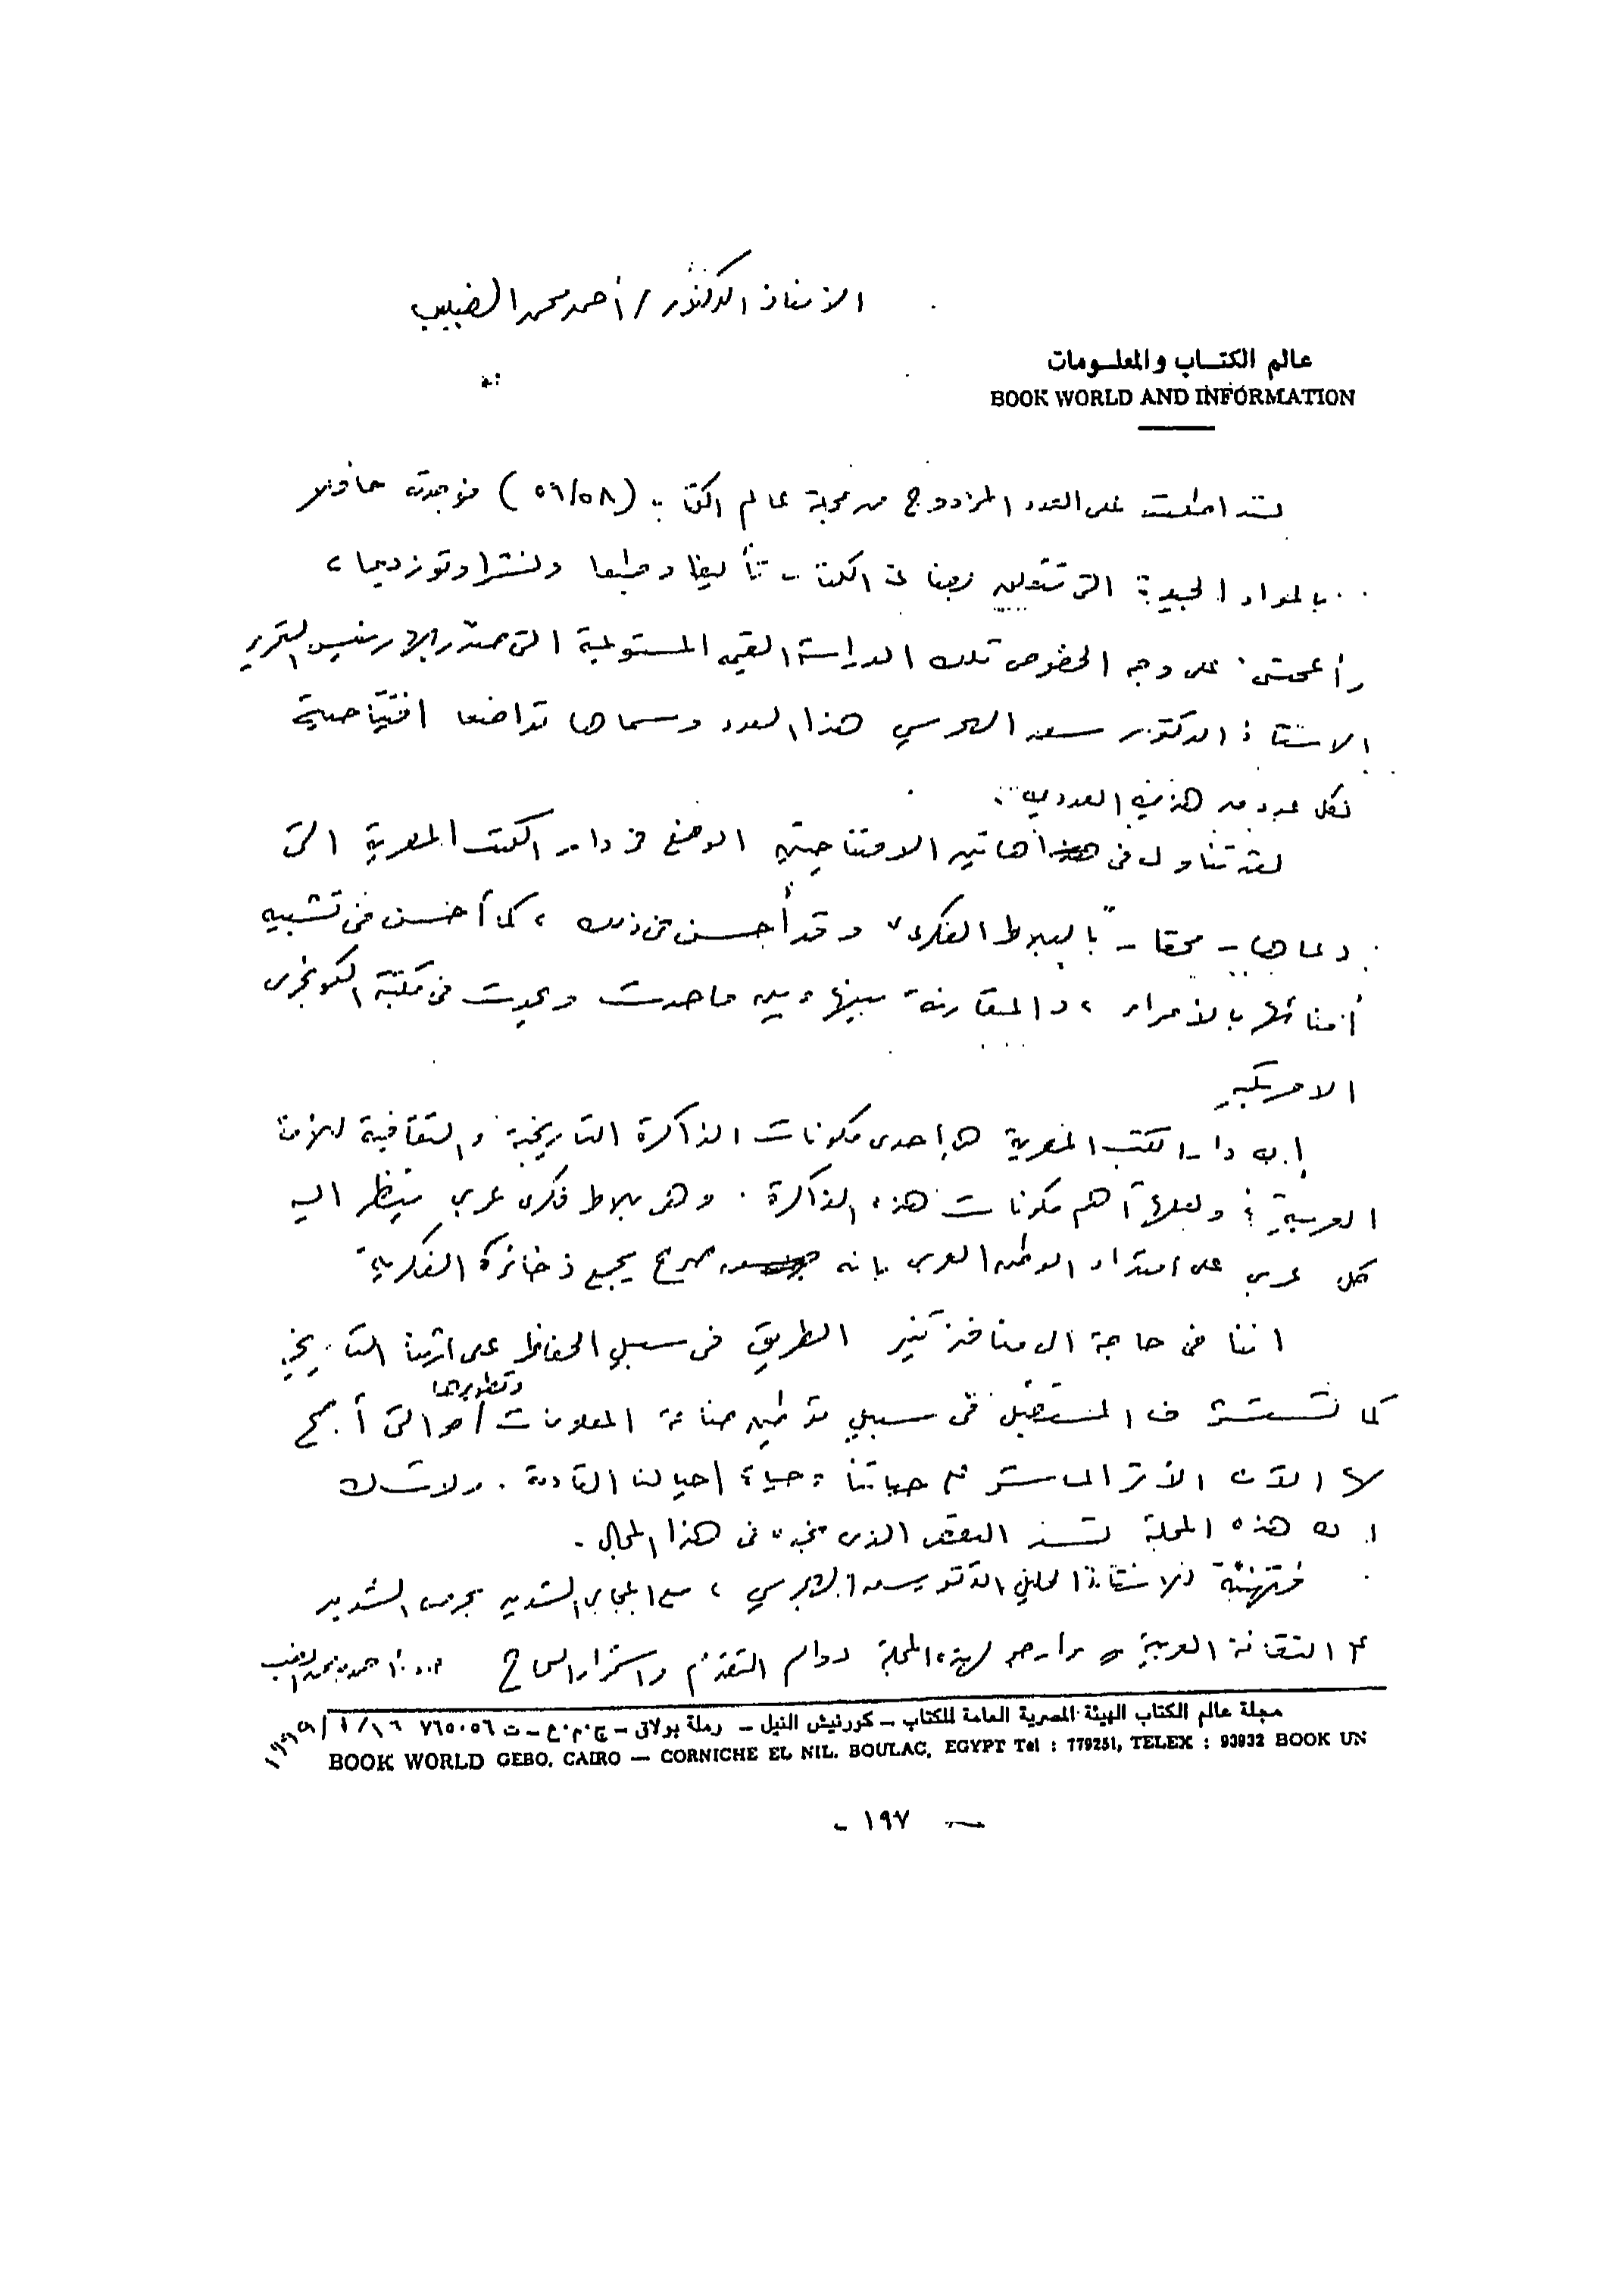 الأستاذ الدكتور / أحمد محمد الضبيب
عالم الكتـــاب والمعلــومات
BOOK WORLD AND INFORMATION
لقد اطلعت على العدد المزدوج من مجلة عالم الكتاب (٥٨/٥٩) فوجدته حافلا
بالمواد الجيدة التى تتعلق بصناعة الكتاب تأليفا وطبعا ونشرا وتوزيعا،
وأعجبتنى على وجه الخصوص تلك الدراسة القيمة المستوعبة التى صدر بها رئيس التحرير
الاستاذ الدكتور سعد الهجرسي هذا العدد وسماها تواضعا افتتاحية
لكل عدد من هذين العددين.
لقد تناول فى هاتين الافتتاحيتين الوضع فى دار الكتب المصرية التى
دعاها - محقا - "بالبلاط الفكرى" وقد أحسن فى ذلك، كما أحسن فى تشبيه
أمنائها بالأمراء، والمقارنة بينها وبين ما حدث ويحدث فى مكتبة الكونجرس
الامريكية
إن دار الكتب المصرية هى إحدى مكونات الذاكرة التاريخية والثقافية للأمة
العربية؛ ولعلها أهم مكونات هذه الذاكرة. وهى بلاط فكرى عربي ينظر اليه
كل عربي على امتداد الوطن العربى بانه صرح يجمع ذخائره الفكرية
اننا فى حاجة الى منافذ تنير الطريق فى سبيل الحفاظ على التاريخي
كما تستشرف المستقبل فى سبيل توطين صناعة المعلومات وتطويرها والتى أصبح
لها الآن الأثر المباشر فى حياتنا وحياة اجيالنا القادمة. ولا شك
ان هذه المجلة تسد النقص الذى نجده فى هذا المجال.
فتهنئة للاستاذ الجليل الدكتور سعد الهجرسي، مع اعجابى الشديد بحرصه الشديد
الثقافة العربية وأرجو لهذه المجلة دوام التقدم واستمرار النجاح أ.د. أحمد محمد الضبيب
مجلة عالم الكتاب الهيئة المصرية العامة للكتاب – كورنيش النيل – رملة بولاق – ج.م.ع – ت ٧٦٥٠٥٦
BOOK WORLD GEBO, CAIRO — CORNICHE EL NIL. BOULAC, EGYPT Tel : 779251, TELEX : 93932 BOOK UN
- ١٩٧ -